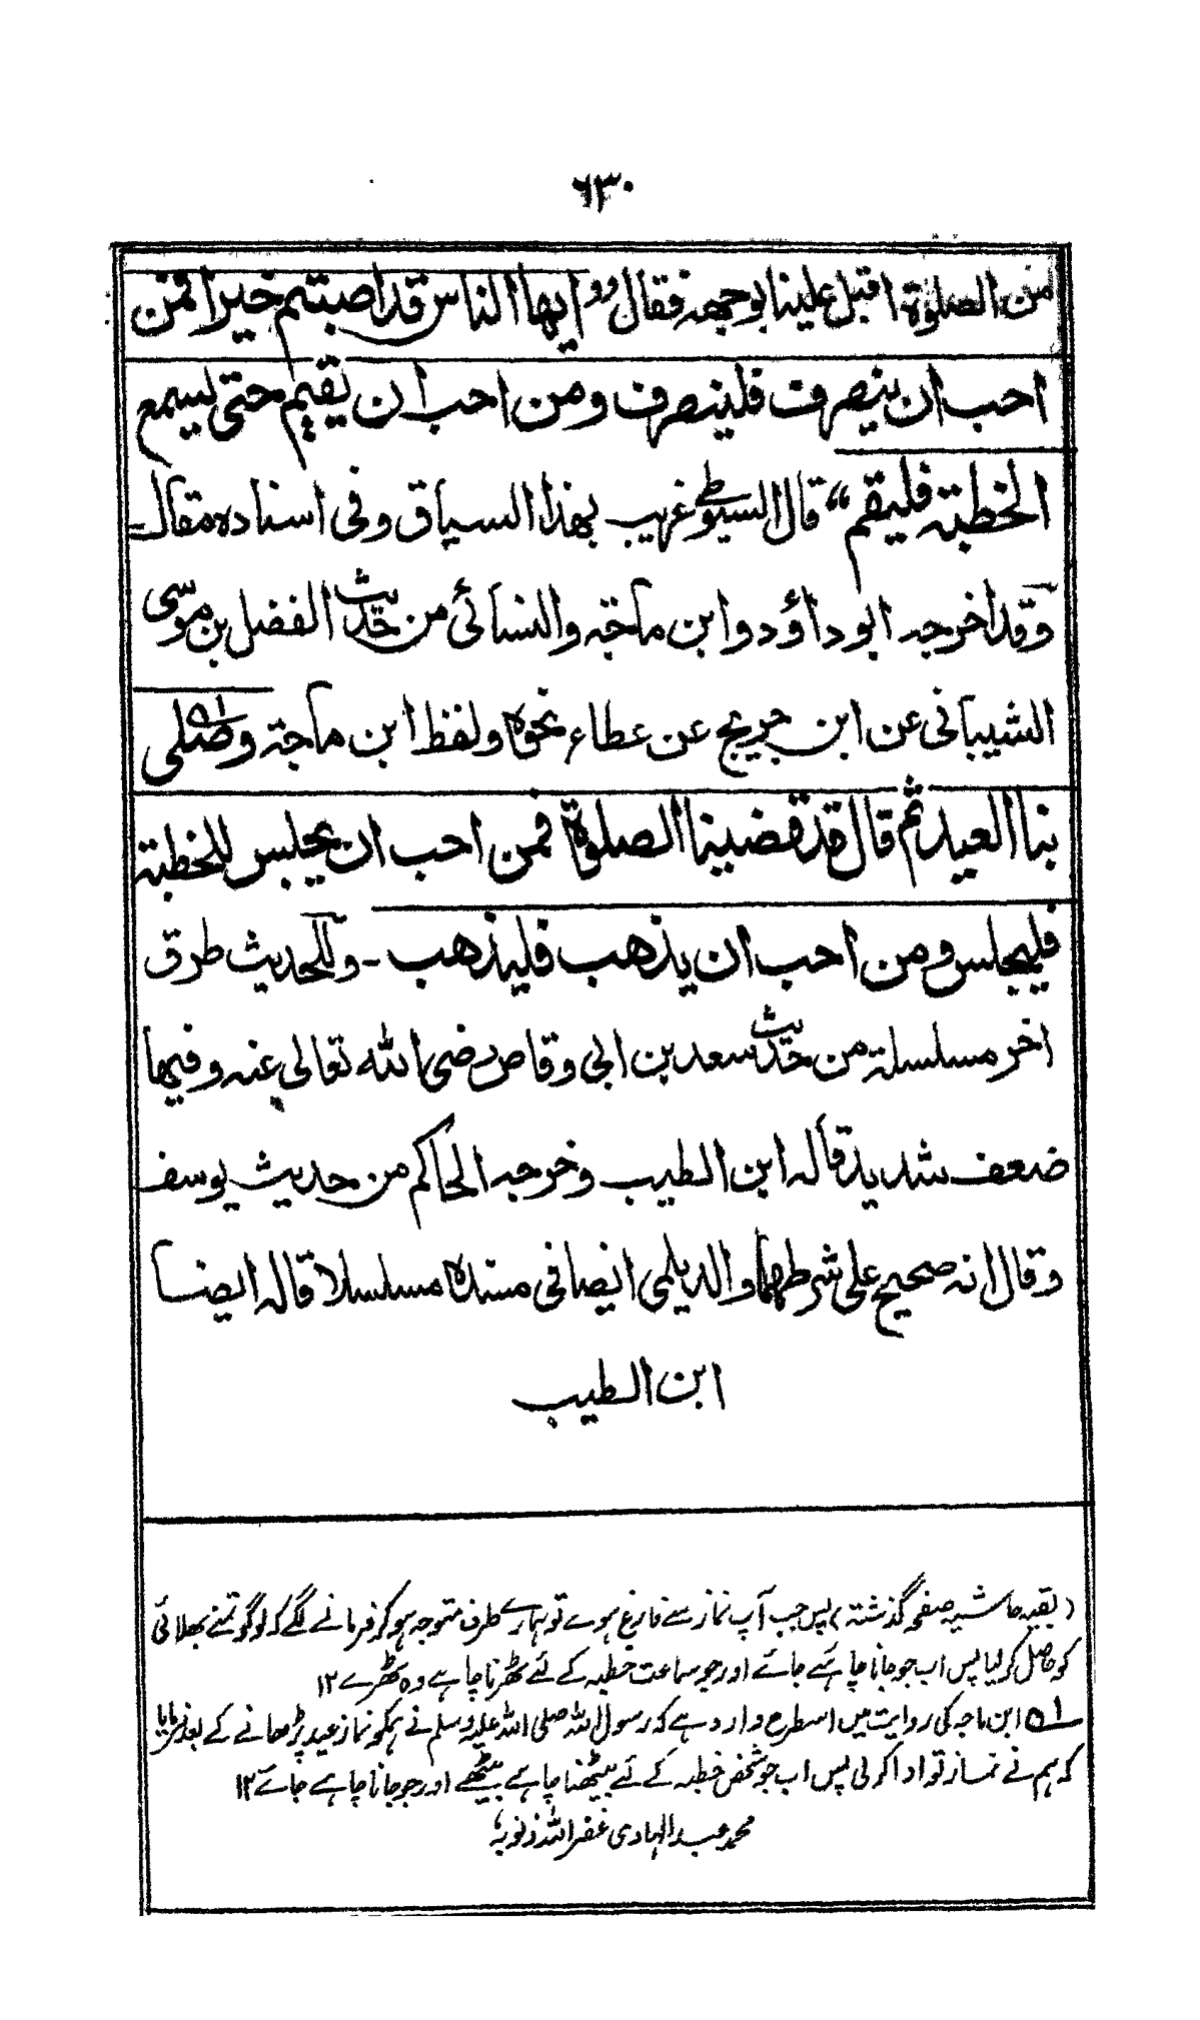 ٦٣٠
من الصلوٰة اقبل علينا بوجهه فقال ’’ايها الناس قد اصبتم خيرا فمن
احب ان ينصرف فلينصرف ومن احب ان يقيم حتى يسمع
الخطبة فليقم‘‘ قال السيوطي غريب بهذا السياق وفي اسناده مقال
وقد اخرجه ابو داؤد وابن ماجة والنسائي من حديث الفضل بن موسى
الشيباني عن ابن جريج عن عطاء نحوه ولفظ ابن ماجة وصلى ۱؎
بنا العيد ثم قال قد قضينا الصلوٰة فمن احب ان يجلس للخطبة
فليجلس ومن احب ان يذهب فليذهب - وللحديث طرق
اخر مسلسلة من حديث سعد بن ابي وقاص رضى الله تعالى عنه وفيها
ضعف شديد قاله ابن الطيب وخرجه الحاكم من حديث يوسف
وقال انه صحيح على شرطهما والديلمى ايضا فى مسنده مسلسلا قاله ايضا
ابن الطيب
(بقیہ حاشیہ صفحہ گذشتہ) پس جب آپ نماز سے فارغ ہوے تو ہمارے طرف متوجہ ہو کر فرمانے لگے کہ لوگو تمنے بھلائی
کو حاصل کر لیا پس اب جو جانا چاہئے جائے اور جو سماعت خطبہ کے لئے ٹھرنا چاہے وہ ٹھرے ۱۲
۱؎ ابن ماجہ کی روایت میں اسطرح وارد ہے کہ رسول اللہ صلی اللہ علیہ وسلم نے ہمکو نماز عید پڑھانے کے بعد فرمایا
کہ ہم نے نماز تو ادا کر لی پس اب جو شخص خطبہ کے لئے بیٹھنا چاہے بیٹھے اور جو جانا چاہے جائے ۱۲
محمد عبد الہادی غفر اللہ ذنوبہٗ